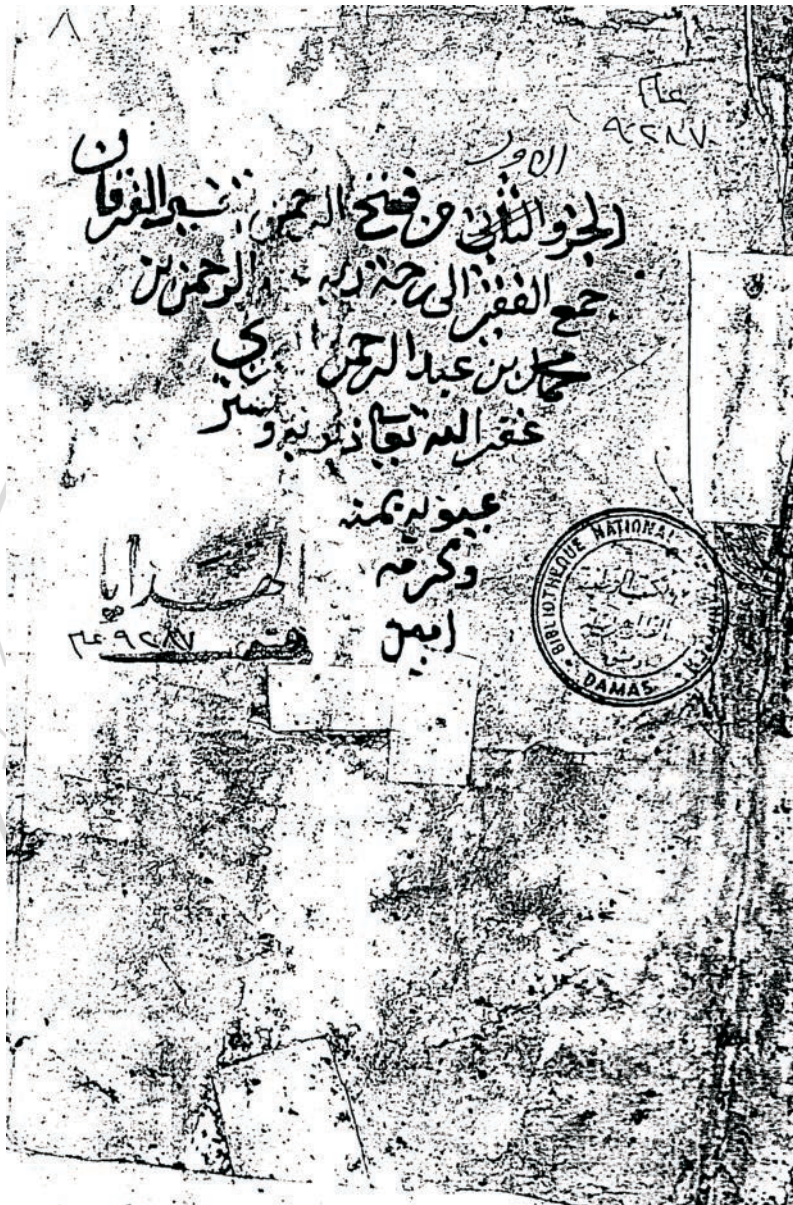 ٨
عام
٩٢٨٧
الاول
الجزو الثاني من فتح الرحمن تفسير القران
جمع الفقير الى رحمة ربه الرحمن بن
محمد بن عبد الرحمن
غفر الله تعا ذنوبه وستر
عيوبه بمنه
وكرمه
امين
هدايا
٩٢٨٧ عام
BIBLIOTHEQUE NATIONAL
DAMAS